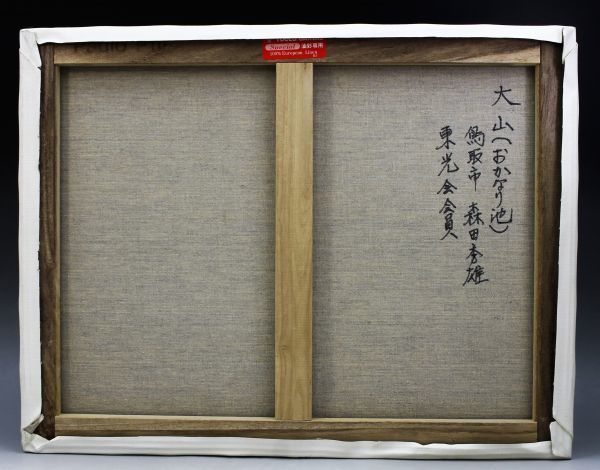 大山(おかなり池)
鳥取市 森田秀雄
東光会会員
Special 油彩専用
100% European Linen